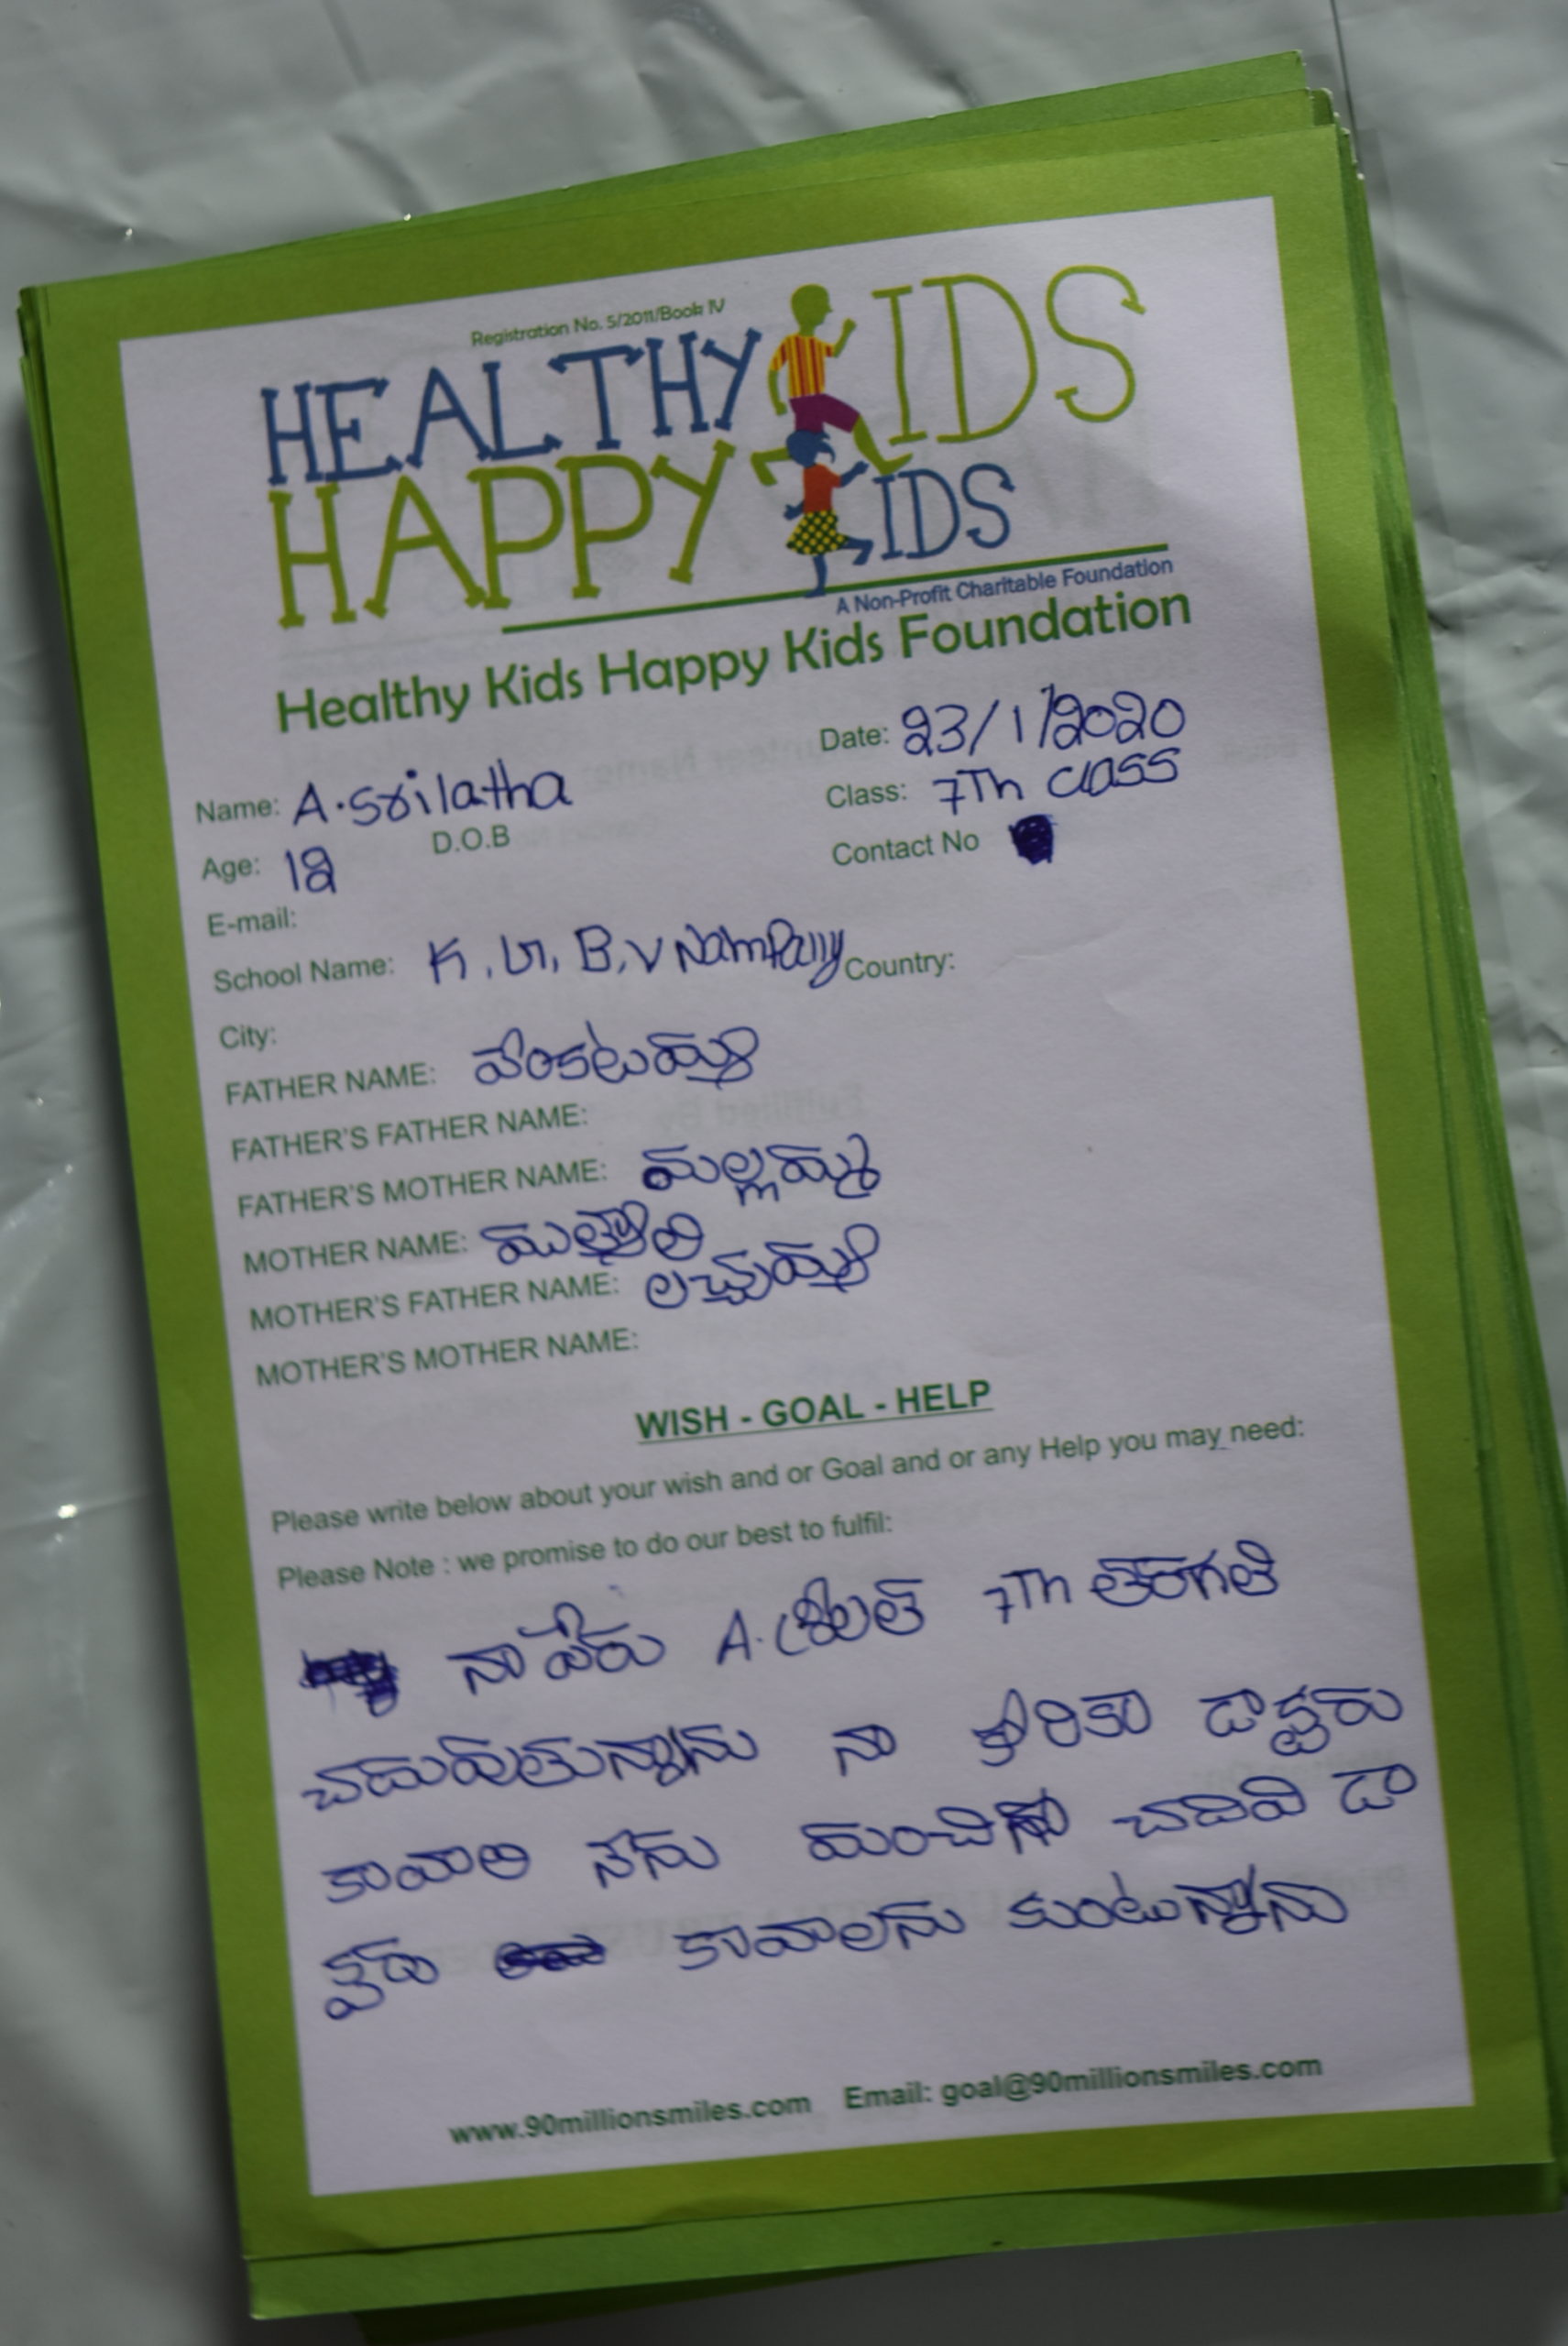 Registration No. 5/2011/Book IV
HEALTHY KIDS
HAPPY KIDS
A Non-Profit Charitable Foundation
Healthy Kids Happy Kids Foundation
Date: 23/1/2020
Name: A.srilatha
Class: 7Th class
Age: 12 D.O.B
Contact No
E-mail:
School Name: K.G.B.V Nampally Country:
City:
FATHER NAME: వెంకటయ్య
FATHER'S FATHER NAME:
FATHER'S MOTHER NAME: మల్లమ్మ
MOTHER NAME:
MOTHER'S FATHER NAME: లచ్చయ్య
MOTHER'S MOTHER NAME:
WISH - GOAL - HELP
Please write below about your wish and or Goal and or any Help you may need:
Please Note : we promise to do our best to fulfil:
నా పేరు A. శ్రీలత 7Th తరగతి
చదువుతున్నాను నా కోరిక డాక్టరు
కావాలి నేను మంచిగా చదివి డా
క్టరు కావాలను కుంటున్నాను
www.90millionsmiles.com Email: goal@90millionsmiles.com